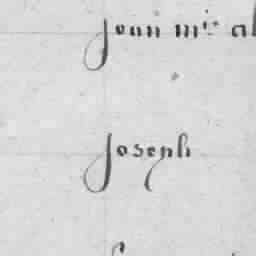 Jean m.ie al
Joseph